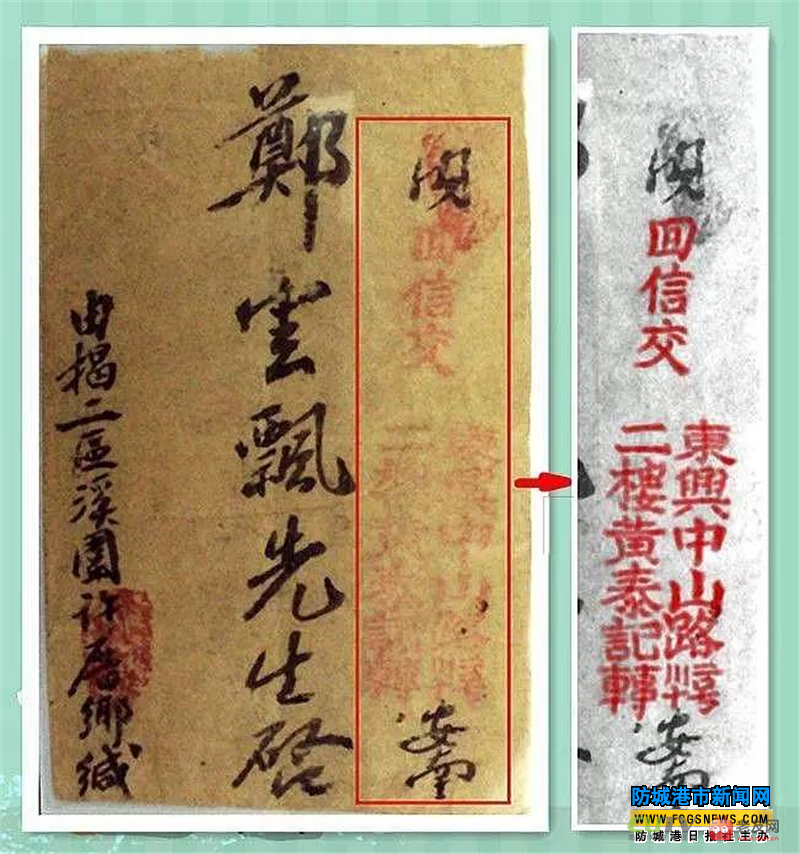 回信交
東興中山路
二樓黃泰記轉
安南
鄭雲飄先生啓
由揭二區溪園許厝鄉緘
回信交
東興中山路
二樓黃泰記轉
安南
防城港市新闻网
WWW.FCGSNEWS.COM
防城港日报社主办